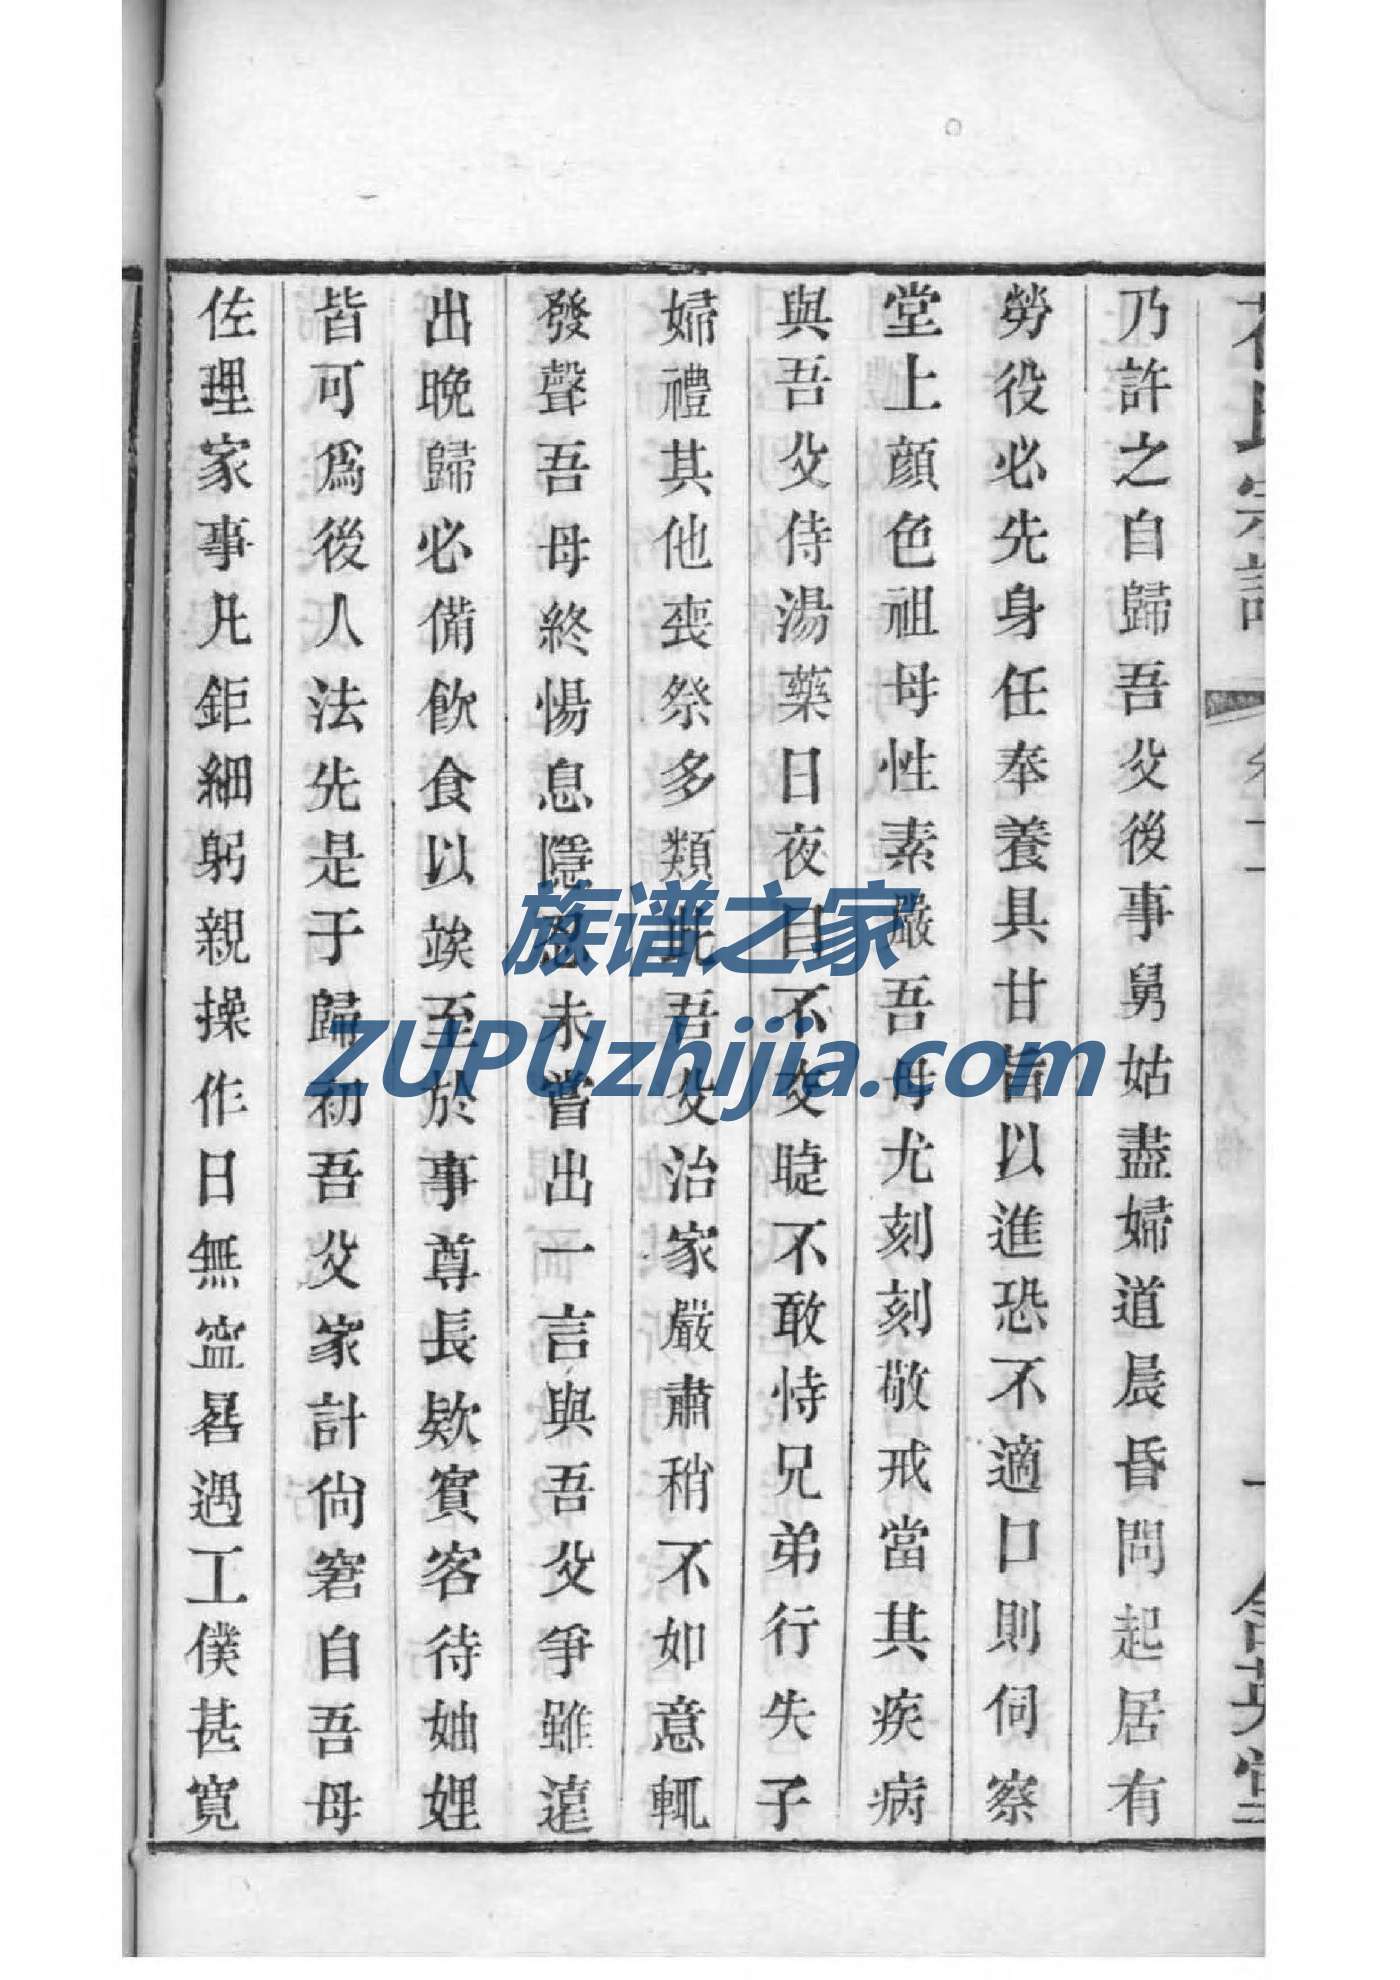 乃許之自歸吾父後事舅姑盡婦道晨昏問起居有
勞役必先身任奉養具甘旨以進恐不適口則伺察
堂上顏色祖母性素嚴吾母尤刻刻敬戒當其疾病
與吾父侍湯藥日夜目不交睫不敢恃兄弟行失子
婦禮其他喪祭多類此吾父治家嚴肅稍不如意輒
發聲吾母終惕息隱忍未嘗出一言與吾父爭雖遠
出晚歸必備飲食以竢至於事尊長欵賓客待妯娌
皆可爲後人法先是于歸初吾父家計尙窘自吾母
佐理家事凡鉅細躬親操作日無寍晷遇工僕甚寬
族谱之家
ZUPUzhijia.com